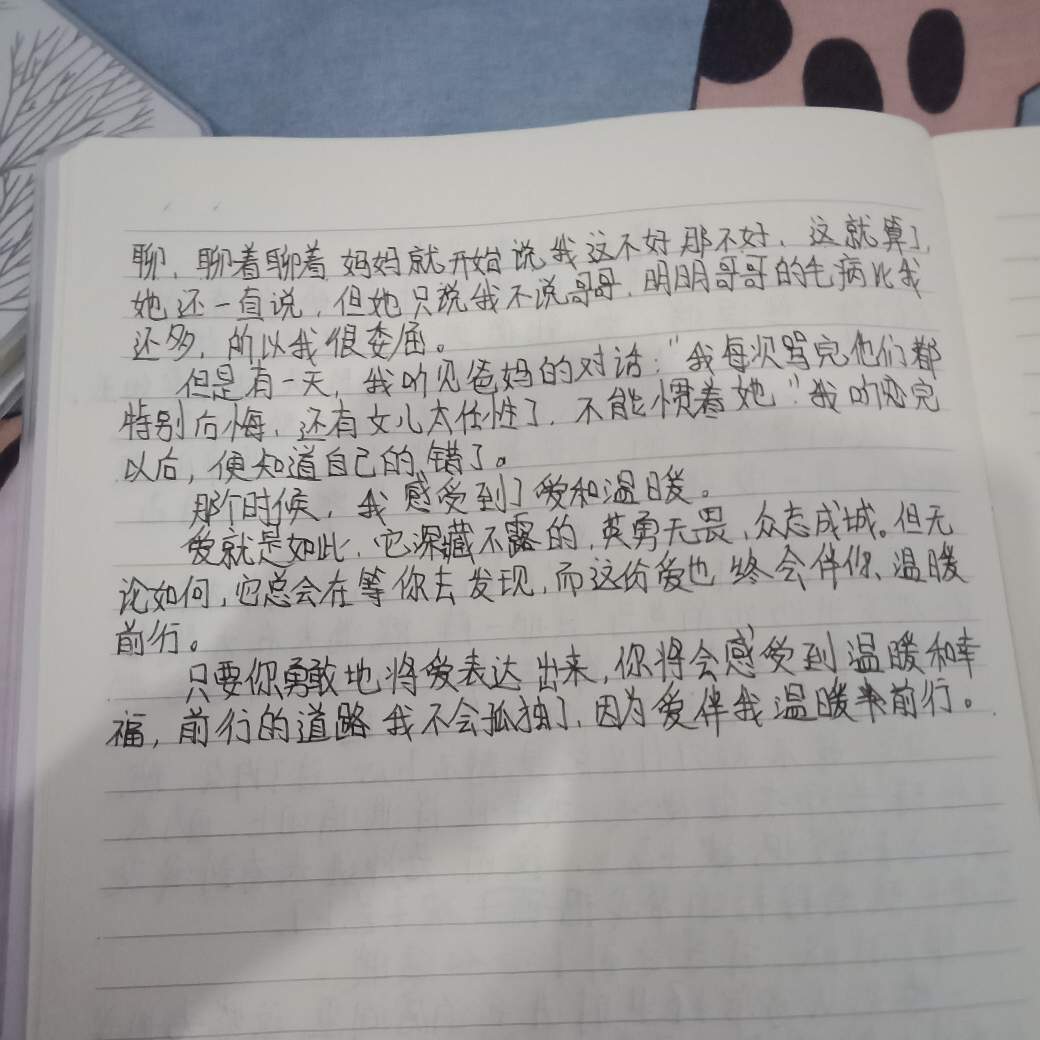 聊，聊着聊着，妈妈就开始说我这不好那不好，这就算了，
她还一直说，但她只说我不说哥哥，明明哥哥的毛病比我
还多，所以我很委屈。
但是有一天，我听见爸妈的对话：“我每次骂完他们都
特别后悔，还有女儿太任性了，不能惯着她”我听完
以后，便知道自己的错了。
那个时候，我感受到了爱和温暖。
爱就是如此，它深藏不露的，英勇无畏，众志成城。但无
论如何，它总会在等你去发现，而这份爱也终会伴你、温暖
前行。
只要你勇敢地将爱表达出来，你将会感受到温暖和幸
福，前行的道路我不会孤独了，因为爱伴我温暖前行。